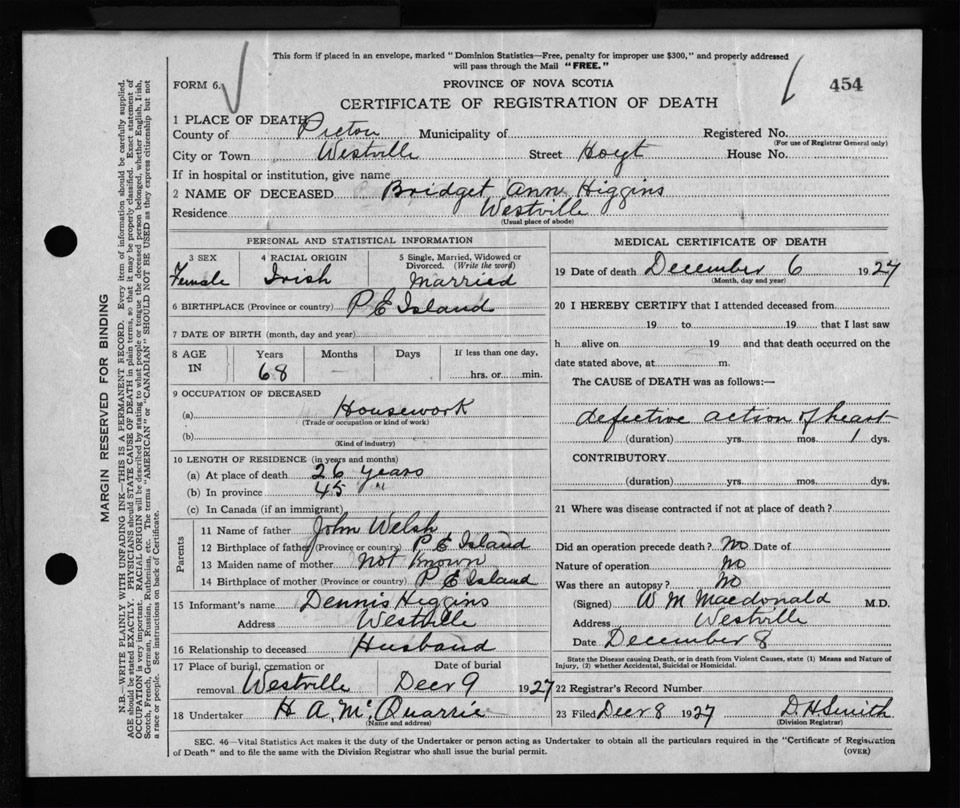 This form if placed in an envelope, marked "Dominion Statistics—Free, penalty for improper use $300," and properly addressed
will pass through the Mail "FREE."
FORM 6.
PROVINCE OF NOVA SCOTIA
454
CERTIFICATE OF REGISTRATION OF DEATH
1 PLACE OF DEATH
County of Pictou Municipality of Registered No.
(For use of Registrar General only)
City or Town Westville Street Hoyt House No.
If in hospital or institution, give name
2 NAME OF DECEASED Bridget Ann Higgins
Residence Westville
(Usual place of abode)
PERSONAL AND STATISTICAL INFORMATION
3 SEX 4 RACIAL ORIGIN 5 Single, Married, Widowed or
Divorced. (Write the word)
Female Irish Married
6 BIRTHPLACE (Province or country) P E Island
7 DATE OF BIRTH (month, day and year)
8 AGE IN Years Months Days If less than one day,
68 hrs. or min.
9 OCCUPATION OF DECEASED
(a) Housework
(Trade or occupation or kind of work)
(b)
(Kind of industry)
10 LENGTH OF RESIDENCE (in years and months)
(a) At place of death 26 years
(b) In province 45 "
(c) In Canada (if an immigrant)
Parents
11 Name of father John Welsh
12 Birthplace of father (Province or country) P E Island
13 Maiden name of mother Not Known
14 Birthplace of mother (Province or country) P E Island
15 Informant's name Dennis Higgins
Address Westville
16 Relationship to deceased Husband
17 Place of burial, cremation or Date of burial
removal Westville Decr 9 1927
18 Undertaker H A McQuarrie
(Name and address)
MEDICAL CERTIFICATE OF DEATH
19 Date of death December 6 1927
(Month, day and year)
20 I HEREBY CERTIFY that I attended deceased from
19 to 19 that I last saw
h alive on 19 and that death occurred on the
date stated above, at m.
The CAUSE of DEATH was as follows:—
defective action of heart
(duration) yrs. mos. 1 dys.
CONTRIBUTORY
(duration) yrs. mos. dys.
21 Where was disease contracted if not at place of death?
Did an operation precede death? No Date of
Nature of operation No
Was there an autopsy? No
(Signed) W M Macdonald M.D.
Address Westville
Date December 8
State the Disease causing Death, or in death from Violent Causes, state (1) Means and Nature of
Injury, (2) whether Accidental, Suicidal or Homicidal.
22 Registrar's Record Number
23 Filed Decr 8 1927 D. H. Smith
(Division Registrar)
SEC. 46—Vital Statistics Act makes it the duty of the Undertaker or person acting as Undertaker to obtain all the particulars required in the "Certificate of Registration
of Death" and to file the same with the Division Registrar who shall issue the burial permit.
(OVER)
MARGIN RESERVED FOR BINDING
N.B.—WRITE PLAINLY WITH UNFADING INK—THIS IS A PERMANENT RECORD. Every item of information should be carefully supplied.
AGE should be stated EXACTLY. PHYSICIANS should STATE CAUSE OF DEATH in plain terms, so that it may be properly classified. Exact statement of
OCCUPATION is very important. RACIAL ORIGIN will be described by stating to what people or tongue the deceased person belonged, whether English, Irish,
Scotch, French, German, Russian, Ruthenian, etc. The terms "AMERICAN" or "CANADIAN" SHOULD NOT BE USED as they express citizenship but not
a race or people. See instructions on back of Certificate.